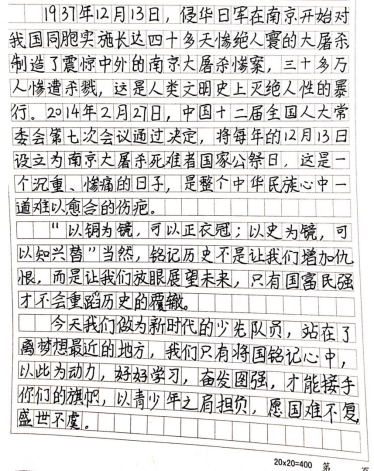 1937年12月13日，侵华日军在南京开始对
我国同胞实施长达四十多天惨绝人寰的大屠杀
制造了震惊中外的南京大屠杀惨案，三十多万
人惨遭杀戮，这是人类文明史上灭绝人性的暴
行。2014年2月27日，中国十二届全国人大常
委会第七次会议通过决定，将每年的12月13日
设立为南京大屠杀死难者国家公祭日，这是一
个沉重、惨痛的日子，是整个中华民族心中一
道难以愈合的伤疤。
“以铜为镜，可以正衣冠；以史为镜，可
以知兴替”当然，铭记历史不是让我们增加仇
恨，而是让我们放眼展望未来，只有国富民强
才不会重蹈历史的覆辙。
今天我们做为新时代的少先队员，站在了
离梦想最近的地方，我们只有将国铭记心中，
以此为动力，好好学习，奋发图强，才能接手
你们的旗帜，以青少年之肩担负，愿国难不复
盛世不虚。
20×20=400 第 页